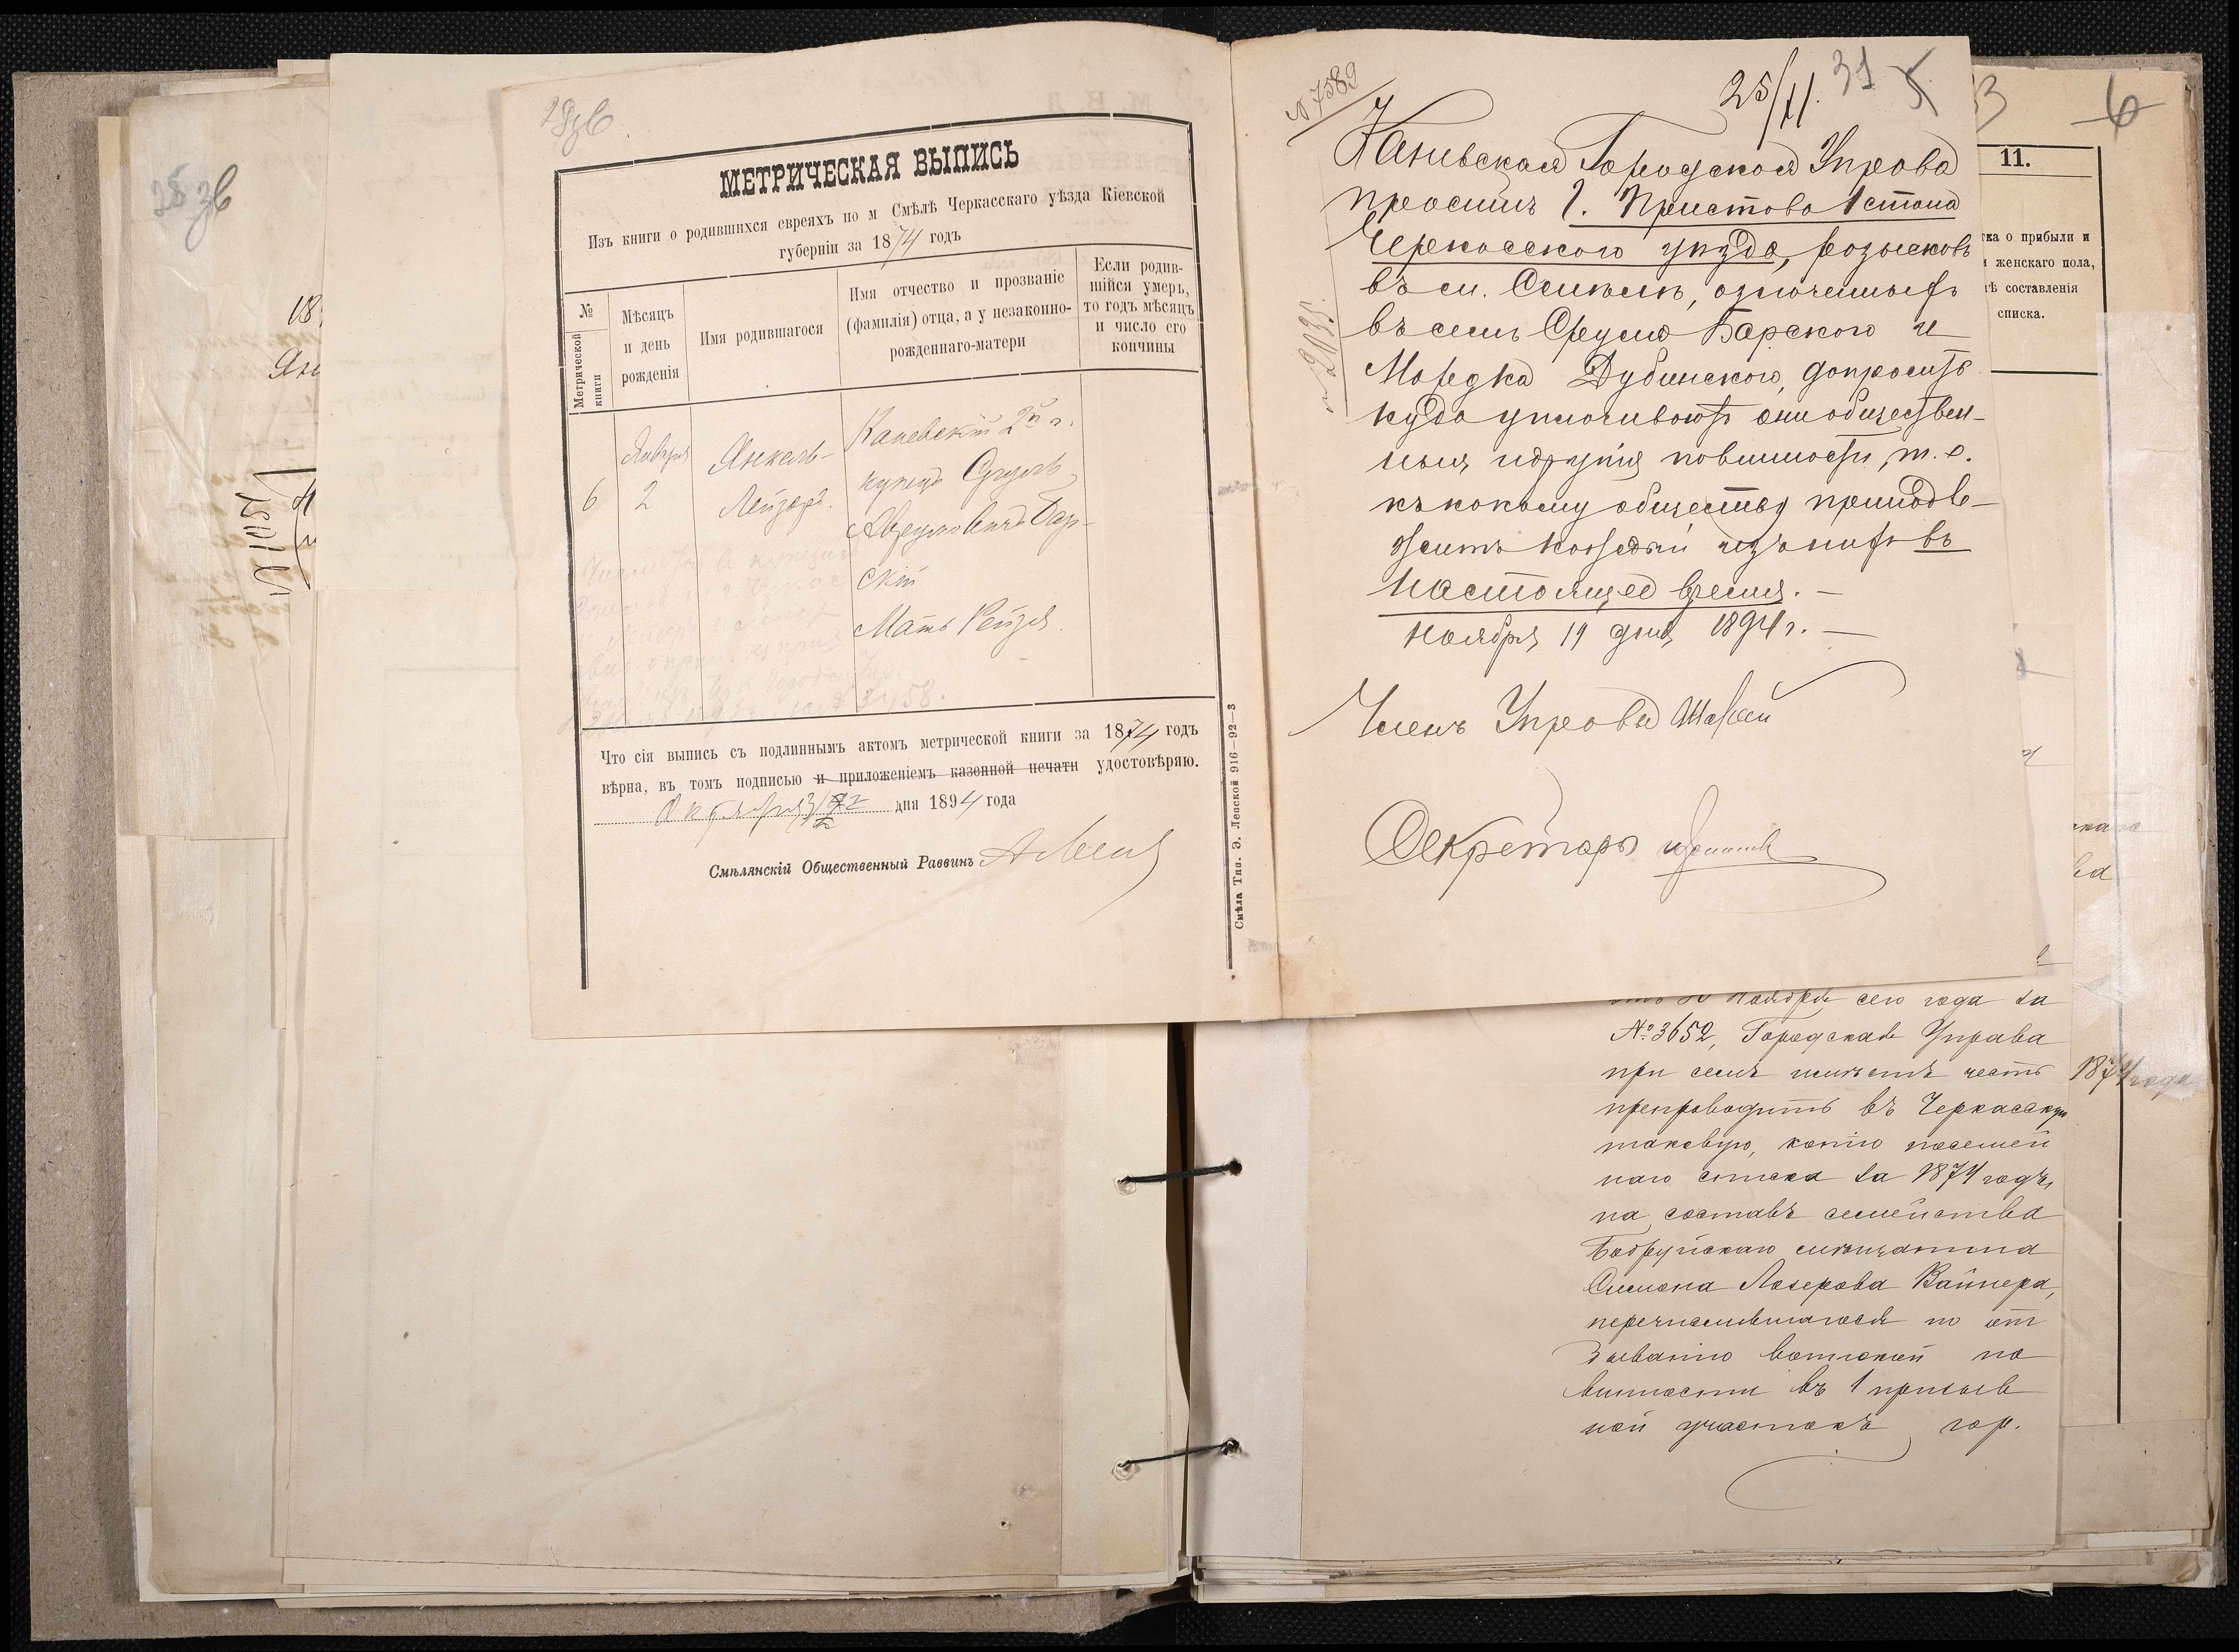 28 зв
18
Яні
№ 1051
28 зв
МЕТРИЧЕСКАЯ ВЫПИСЬ
Изъ книги о родившихся евреяхъ по м Смѣлѣ Черкасскаго уѣзда Кіевской
губерніи за 1874 годъ
№ Метрической книги
Мѣсяцъ и день рожденія
Имя родившагося
Имя отчество и прозваніе (фамилія) отца, а у незаконно-рожденнаго-матери
Если родившійся умеръ, то годъ мѣсяцъ и число его кончины
6
Января 2
Янкель-
Лейзоръ.
Каневскій 2й г.
купецъ Сруль
Аврумовичъ Бар-
скій
Мать Рейзя.
3458.
Что сія выпись съ подлиннымъ актомъ метрической книги за 1874 годъ
вѣрна, въ томъ подписью и приложеніемъ казенной печати удостовѣряю.
Октября 31 дня 1894 года
Смѣлянскій Общественный Раввинъ
Смѣла Тип. Э. Лепской 916—92—3
№ 7589
25/XI. 31
Каневская Городская Управа
проситъ Г. Пристава 1 стана
Черкасского уѣзда, розыскавъ
въ м. Смѣлѣ, означенныхъ
въ семъ Сруля Барского и
Мордка Дубинского, допросить
куда уплачиваютъ они обществен-
ныя и другія повинности, т.е.
къ какому обществу принадле-
житъ каждый изъ нихъ въ
настоящее время. —
Ноября 19 дня 1894 г. —
№ 2035.
Членъ Управы
Секретарь
3 6
11.
тка о прибыли и
женскаго пола,
тѣ составленія
списка.
Ноября сего года за
№ 3652, Городская Управа
при семъ имѣетъ честь
препроводить въ Черкасскую
таковую, копію посемей
наго списка за 1874 годъ,
на составъ семейства
Бобруйскаго мѣщанина
Симона Лазерова Вайнера,
перечислившагося по от
быванію воинской по
винности въ 1 призыв
ной участокъ гор.
1874 года